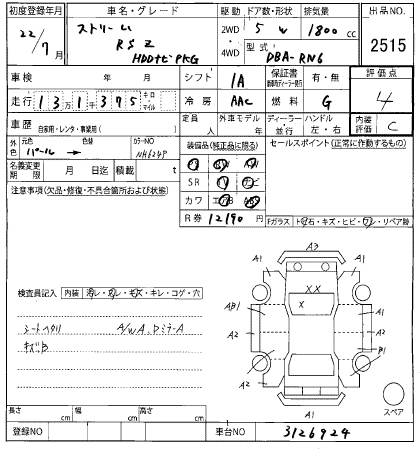 初度登録年月 車名・グレード 駆動 ドア数・形状 排気量 出品NO.
22/7月 ストリーム RSZ HDDナビPKG 2WD 4WD 5 W 1800 cc 2515
型式 DBA-RN6
車検 年 月 シフト IA 保証書 有・無 評価点 4
走行 131千375 キロ マイル 冷房 AAC 燃料 G
車歴 自家用・レンタ・事業用( ) 定員 人 外車モデル 年 ディーラー 並行 ハンドル 左・右 内装評価 C
外色 元色 パール 色替 カラーNO NH624P 装備品(純正品に限る) セールスポイント(正常に作動するもの)
名義変更期限 月 日迄 積載 t
SR ナビ
注意事項(欠品・修復・不具合箇所および状態) カワ
R券 12190円 Fガラス トビ石・キズ・ヒビ・ワレ・リペア跡
A3
A1 A1
X X
X
検査員記入 内装 汚レ・ダレ・キズ・キレ・コゲ・穴
AB1 A1
シートヘタリ A/WA、Dミラ-A A2 A2
キズB B1
A2 A2
A1 スペア
長さ cm 幅 cm 高さ cm
登録NO 車台NO 3126924